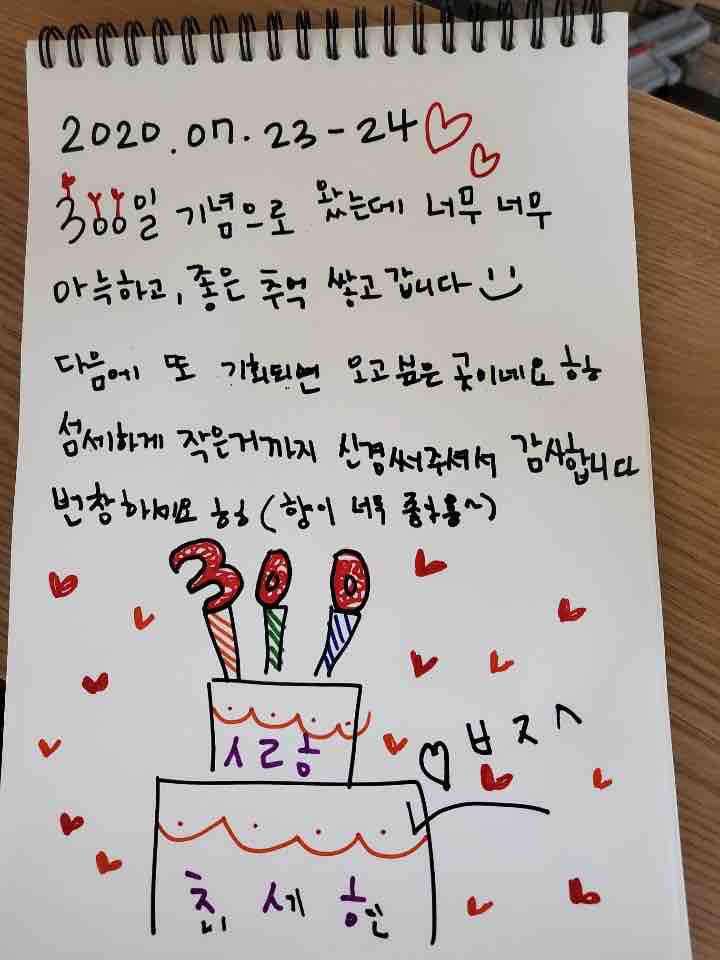 2020.07.23-24
300일 기념으로 왔는데 너무 너무
아늑하고, 좋은 추억 쌓고갑니다
다음에 또 기회되면 오고싶은 곳이네요 ㅎㅎ
섬세하게 작은거까지 신경써주셔서 감사합니다
번창하세요 ㅎㅎ (향이 너무 좋아용~)
300
ㅅㄹㅎ
ㅂㅈㅅ
최세훈